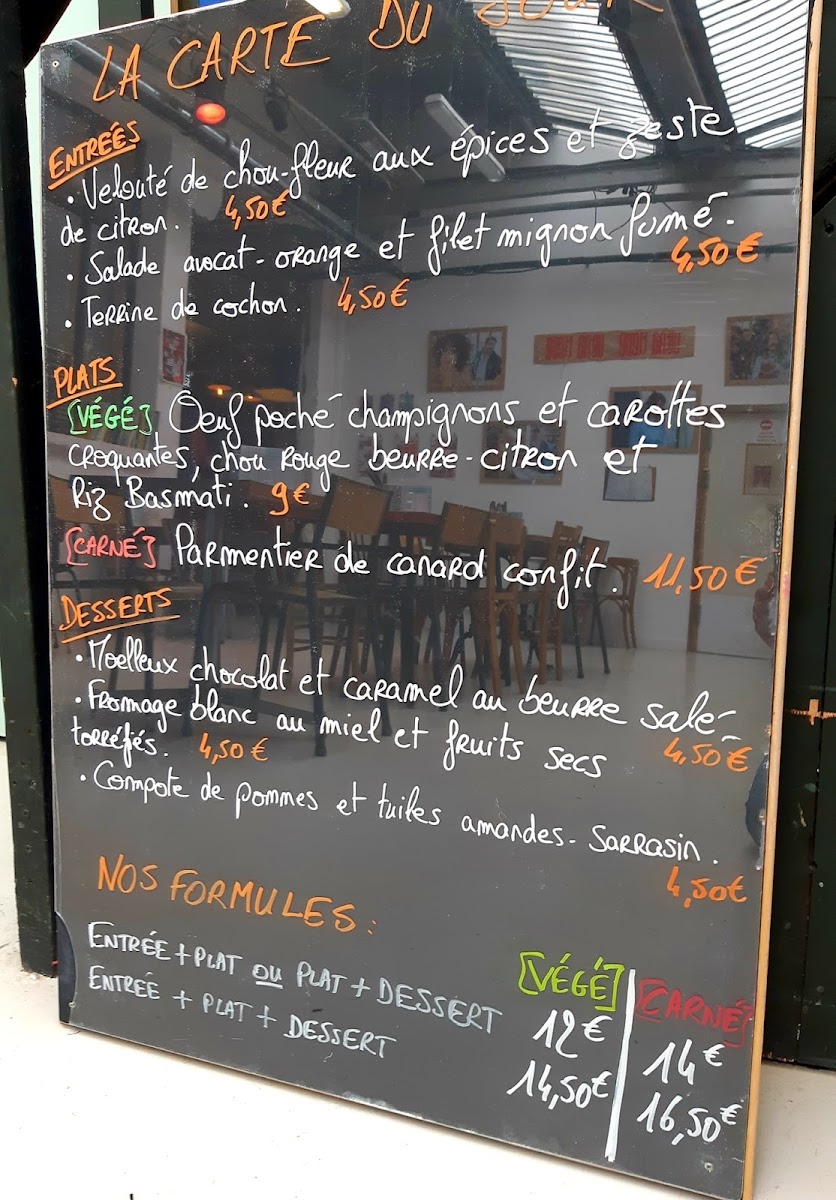 LA CARTE DU JOUR
ENTRÉES
• Velouté de chou-fleur aux épices et zeste
de citron. 4,50€
• Salade avocat-orange et filet mignon fumé.
4,50€
• Terrine de cochon. 4,50€
PLATS
[VÉGÉ] Oeuf poché champignons et carottes
croquantes, chou rouge beurre-citron et
Riz Basmati. 9€
[CARNÉ] Parmentier de canard confit. 11,50€
DESSERTS
• Moelleux chocolat et caramel au beurre salé.
4,50€
• Fromage blanc au miel et fruits secs
torréfiés. 4,50€
• Compote de pommes et tuiles amandes-sarrasin.
4,50€
NOS FORMULES :
[VÉGÉ] [CARNÉ]
ENTRÉE + PLAT OU PLAT + DESSERT 12€ 14€
ENTRÉE + PLAT + DESSERT 14,50€ 16,50€